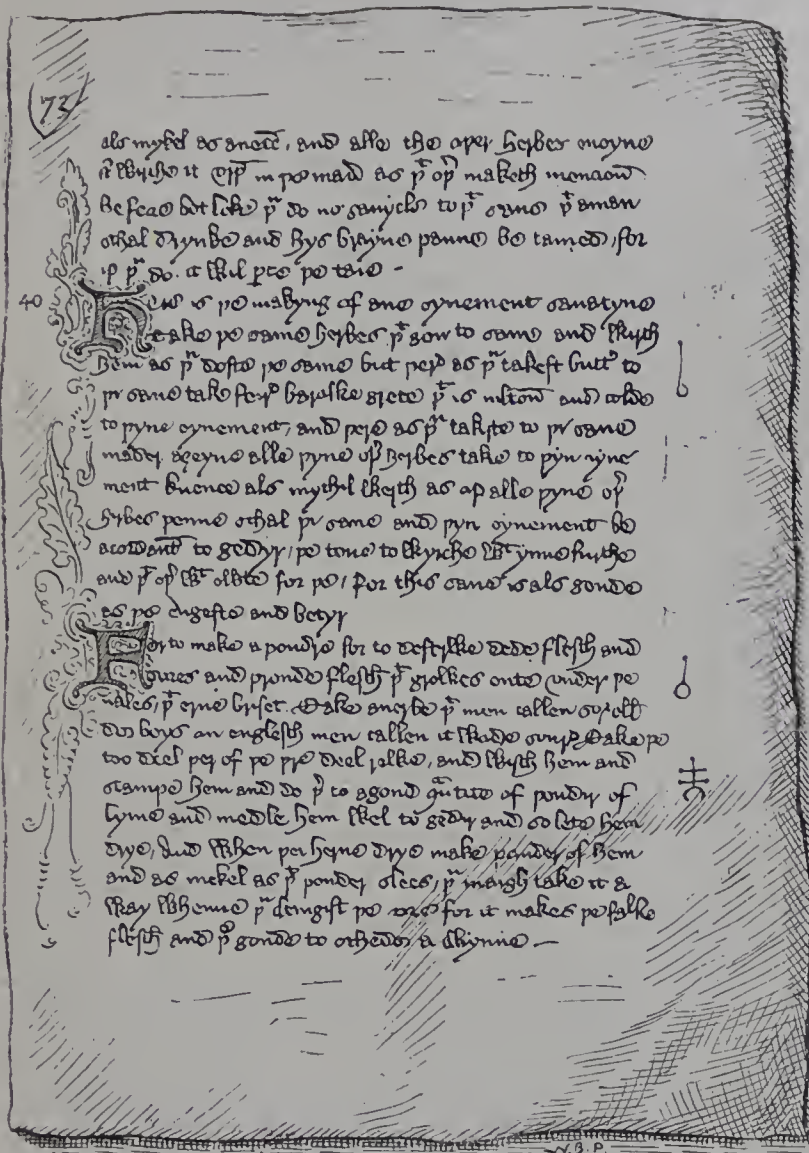 73
als mykel as anete, and alle the oþer herbes eueyne
& wirche it in þe mad as þt oþr maketh mencion
be feao bot loke þu do no sanycle to þt saue þt aman
schal drynke and hys brayne panne be tamed, for
if þu do. it wil þe taie -
40 Her is þe makyng of ane oynement sanatyue
take þe same herbes þt gon to saue and wirch
hem as þu doste þe same but þer as þu takest butter to
þi saue take feyr barowke grece þt is molton and colde
to þyne oynement, and þere as þu takiste to þi saue
mader aȝeyne alle þyne oþr herbes take to þyn oyne
ment kuence als mythil weith as of alle þyne oþr
herbes þenne schal þi saue and þyn oynement be
acordant to gedyr, þe tone to wyrche wt ynne furthe
and þt oþr wt owte for þe, for this saue is als goude
as þe eugeste and betyr
For to make a poudre for to destrwe dede flesch and
sores and proude flesch þt growes onte vnder þe
nales, þt erne briset. Take anerbe þt men callen sorell
dos boys an englesch men callen it wode soure Take þe
too diel þer of þe þre deel rwe, and wesch hem and
stampe hem and do þer to a goud qantite of poudyr of
lyme and medle hem wel to gedyr and so lete hem
drye, And when þei herne drye make pouder of hem
and as mekel as þt pouder slees, þu maigh take it a
way whenne þu chingist þe sore for it makes þe falke
flesch and þt goude to schede a twynne -
W.B.P.